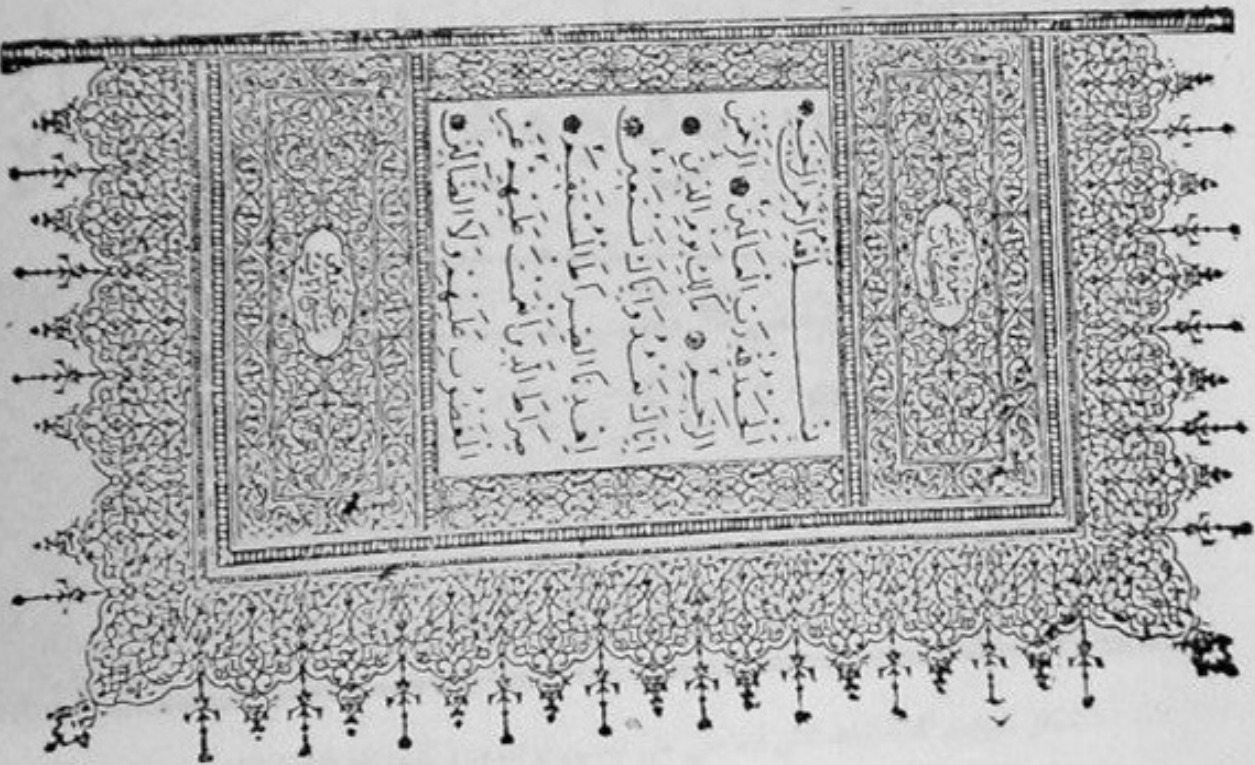 بِسْمِ اللهِ الرَّحْمٰنِ الرَّحِيمِ
الْحَمْدُ لِلّٰهِ رَبِّ الْعَالَمِينَ الرَّحْمٰنِ
الرَّحِيمِ مَالِكِ يَوْمِ الدِّينِ
إِيَّاكَ نَعْبُدُ وَإِيَّاكَ نَسْتَعِينُ
اهْدِنَا الصِّرَاطَ الْمُسْتَقِيمَ
صِرَاطَ الَّذِينَ أَنْعَمْتَ عَلَيْهِمْ غَيْرِ
الْمَغْضُوبِ عَلَيْهِمْ وَلَا الضَّالِّينَ